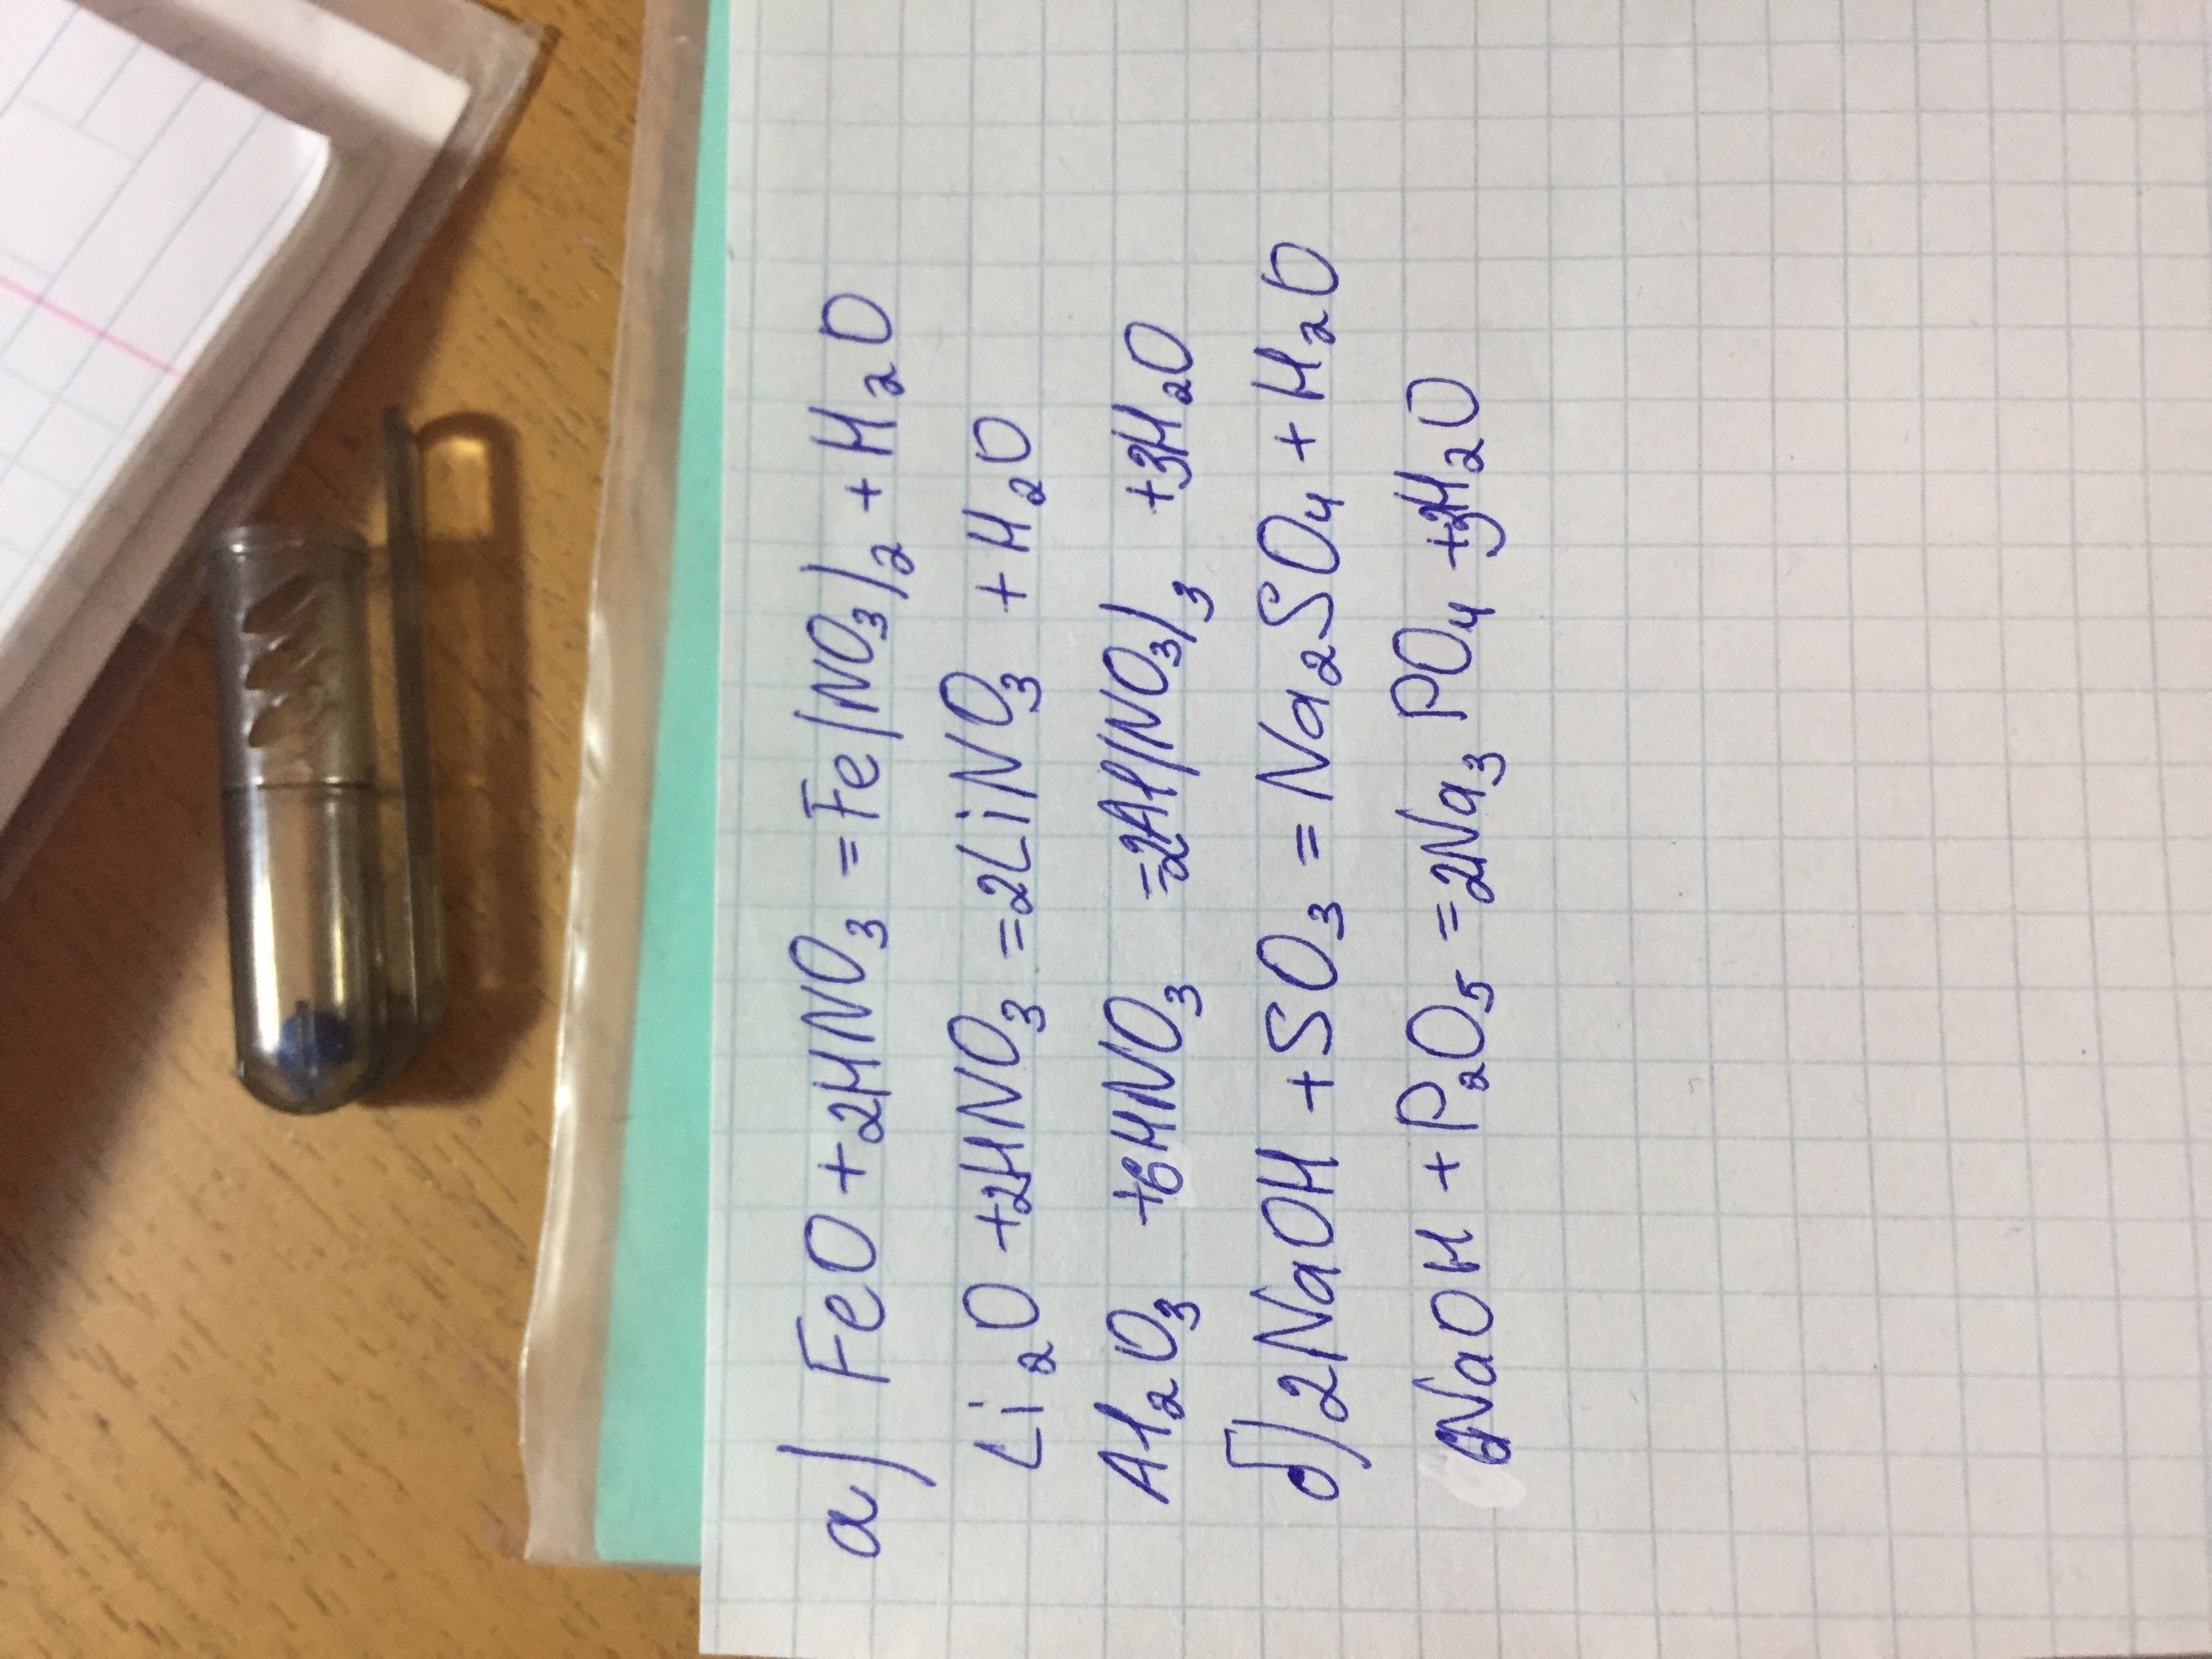 а) FeO + 2HNO₃ = Fe(NO₃)₂ + H₂O
Li₂O + 2HNO₃ = 2LiNO₃ + H₂O
Al₂O₃ + 6HNO₃ = 2Al(NO₃)₃ + 3H₂O
б) 2NaOH + SO₃ = Na₂SO₄ + H₂O
6NaOH + P₂O₅ = 2Na₃PO₄ + 3H₂O